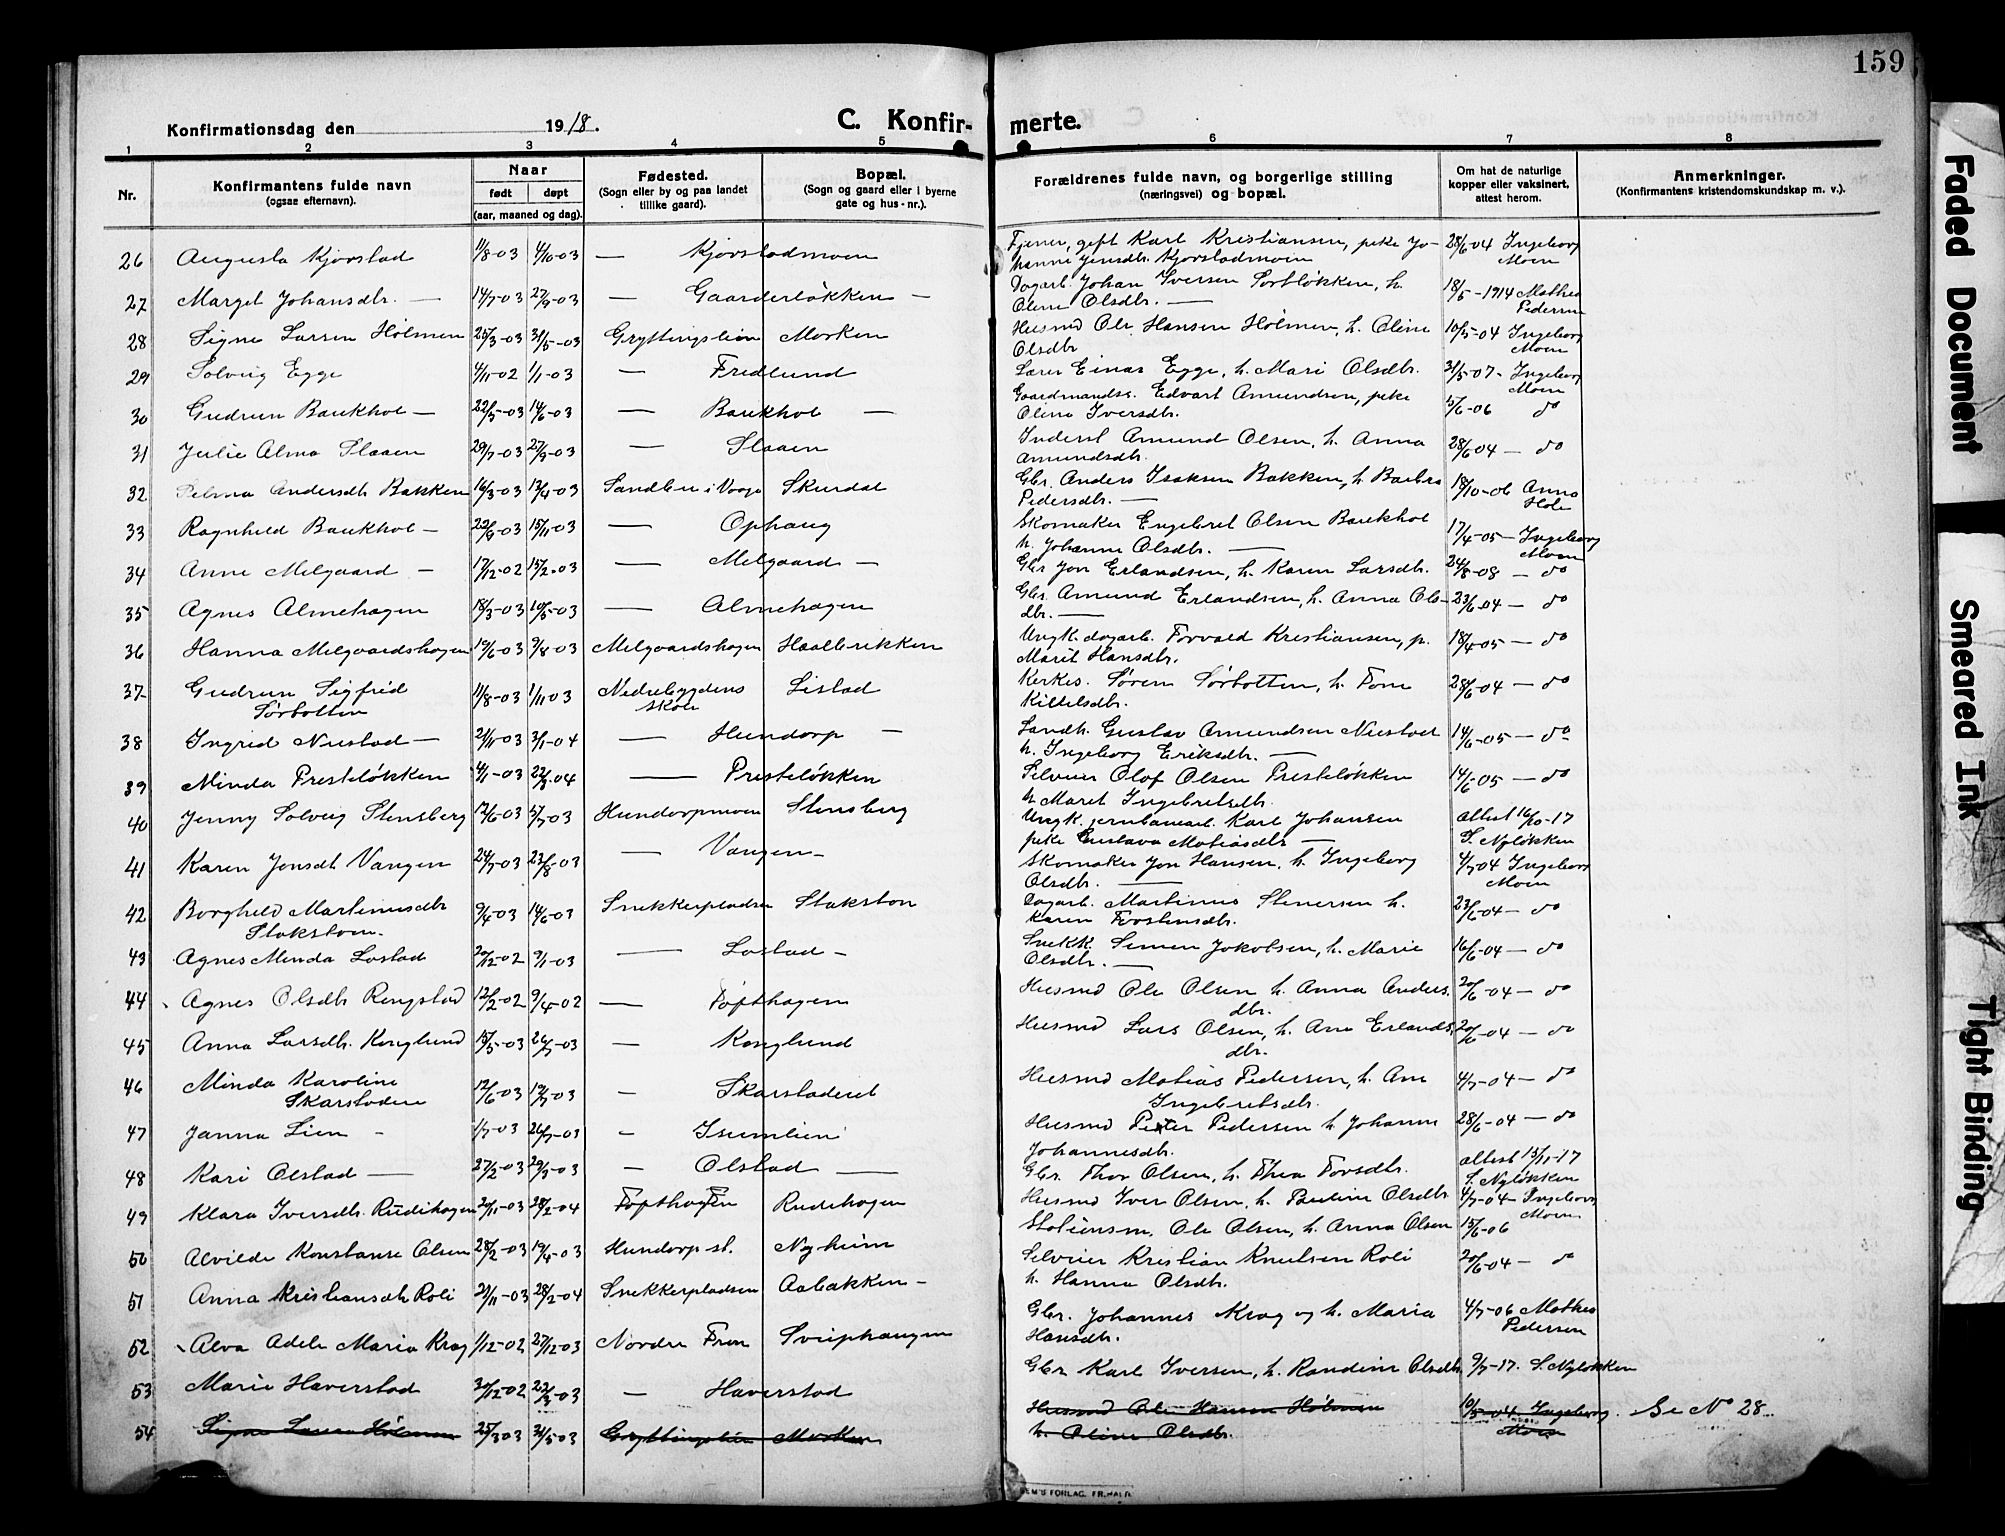 159
Konfirmationsdag den 1918.
C. Konfir-
merte.
1 2 3 4 5 6 7 8
Nr.
Konfirmantens fulde navn
(ogsaa efternavn).
Naar
født døpt
(aar, maaned og dag).
Fødested.
(Sogn eller by og paa landet
tillike gaard).
Bopæl.
(Sogn og gaard eller i byerne
gate og hus-nr.).
Forældrenes fulde navn, og borgerlige stilling
(næringsvei) og bopæl.
Om hat de naturlige
kopper eller vaksinert,
attest herom.
Anmerkninger.
(Konfirmantens kristendomskundskap m. v.).
26 Augusta Kjørstad 11/8-03 4/10-03 — Kjørstadmoen Tjener, gift Karl Kristiansen, pike Jo- 28/6 04 Ingeborg
hanne Jensdtr. Kjørstadmoen Moen
27 Margit Johansdtr. — 14/7-03 27/9-03 — Gaarderløkken — Dagarb. Johan Iversen Sortløkken, h. 18/5-1914 Mathea
Oline Olsdtr. — Pedersen
28 Signe Larsen Holmen 25/3-03 31/5-03 Gryttingslien Morken Husmd Ole Hansen Holmen, h. Oline 10/5-04 Ingeborg
Olsdtr Moen
29 Solveig Egge 4/11-02 1/1-03 — Fredlund Lærer Einar Egge, h. Mari Olsdtr. 31/5-07- Ingeborg
Moen
30 Gudrun Baukhol — 22/5-03 14/6-03 — Baukhol — Gaardmandss. Edvart Amundsen, pike 15/6-06 do
Oline Iversdtr.
31 Julie Alma Slaaen 29/7-03 27/9-03 — Slaaen Inderst Amund Olsen, h. Anna 28/6 04 — do
Amundsdtr.
32 Selma Andersdtr Bakken 16/3-03 13/4-03 Sandbu i Vaage Skurdal Gbr. Anders Isaksen Bakken, h. Barbro 18/10-06 Anna
Pedersdtr. — Hole
33 Ragnhild Baukhol — 22/9-03 15/11-03 — Ophaug Skomaker Engebret Olsen Baukhol 17/4-05 — Ingeborg
h. Johanne Olsdtr. — Moen
34 Anne Melgaard — 17/12-02 15/2-03 — Melgaard — Gbr Jon Erlandsen, h. Karen Larsdtr. 24/8-08 — do
35 Agnes Almehagen 18/3-03 10/5-03 — Almehagen Gbr. Amund Erlandsen, h. Anna Ols- 23/6 04 — do
dtr. —
36 Hanna Melgaardshagen 19/6-03 9/8-03 Melgaardshagen Haalbrikken Ungk. dagarb. Torvald Kristiansen, p. 18/4-05 — do
Marit Hansdtr.
37 Gudrun Sigfrid 11/8-03 1/11 03 Nedrebygdens Listad Kerkes. Søren Sørbotten, h. Tone 28/6-04 — do
Sørbotten skole Kittelsdtr.
38 Ingrid Nustad — 21/11-03 3/1-04 — Hundorp — Landh. Gustav Amundsen Nustad 14/6-05 — do
h. Ingeborg Eriksdtr. —
39 Minda Presteløkken 4/1-03 22/3-04 — Presteløkken Selveier Olof Olsen Presteløkken 14/6-05 — do
h. Maret Ingebretsdtr.
40 Jenny Solveig Stensberg 12/6-03 5/7-03 Hundorpmoen Stensberg Ungk. jernbanearb. Karl Johansen attest 16/10-17
pike Gustava Matiasdtr — S. Nyløkken
41 Karen Jonsdt Vangen 24/7-03 23/8-03 — Vangen — Skomaker Jon Hansen, h. Ingeborg 4/7-04 Ingeborg
Olsdtr. — Moen
42 Borghild Martinusdtr 9/4-03 14/6-03 Snekkerpladsen Stokston Dagarb. Martinus Stenersen h. 23/6-04 — do
Karen Torstensdtr.
43 Agnes Minda Lostad 20/12-02 9/1-03 — Lostad — Snekk. Simen Jakobsen, h. Marie 16/6-04 — do
Olsdtr. —
44 Agnes Olsdtr Ringstad 12/2-02 9/4-02 — Tofthagen Husmd Ole Olsen h. Anna Anders. 20/6-04 — do
dtr.
45 Anna Larsdtr. Konglund 15/5-03 26/7-03 — Konglund Husmd Lars Olsen, h. Ane Erlands. 20/6-04 — do
dtr.
46 Minda Karoline 12/6-03 19/7-03 — Skarstaderet Husmd Matias Pedersen, h. Ane 4/7-04 — do
Ingebretsdtr.
47 Janna Lien — 1/7-03 26/7-03 — Isumlien Husmd Peter Pedersen h Johanne 28/6-04 — do
Johannesdtr.
48 Kari Olstad — 27/2-03 29/3-03 — Olstad — Gbr. Thor Olsen, h. Thea Torsdtr. attest 15/11-17
S. Nyløkken
49 Klara Iversdtr. Rudihagen 20/11-03 28/2-04 Tofthagen Rudehagen Husmd Iver Olsen, h. Pauline Olsdtr 4/7-04 Ingeborg
Moen
50 Alvilde Konstanse Olsen 28/2-03 19/4-03 Hundorp st. Nyheim Stationsm. Ole Olsen, h. Anna Olsen 15/6-06
51 Anna Kristiansdtr Roli 21/11-03 28/2-04 Snekkerpladsen Aabakken — Selveier Kristian Knutsen Roli 20/6-04 — do
h. Hanna Olsdtr.
52 Alva Adele Maria Krag 1/12-02 27/12-03 Nordre Fron Sveiphaugen Gbr. Johannes Krag og h. Maria 4/7-06 Mathea
Hansdtr. Pedersen
53 Marie Haverstad 30/12-02 22/3-03 — Haverstad Gbr Karl Iversen, h. Randine Olsdtr. 9/7-17. S. Nyløkken
54 Signe Larsen Holmen 25/3 03 31/5 03 Gryttingslien Morken Husmd Ole Hansen Holmen 10/5-04 Ingeborg. Se No 28
h. Oline Olsdtr. Moen
FORLAG, FR.HALD
Faded Document
Smeared Ink
Tight Binding